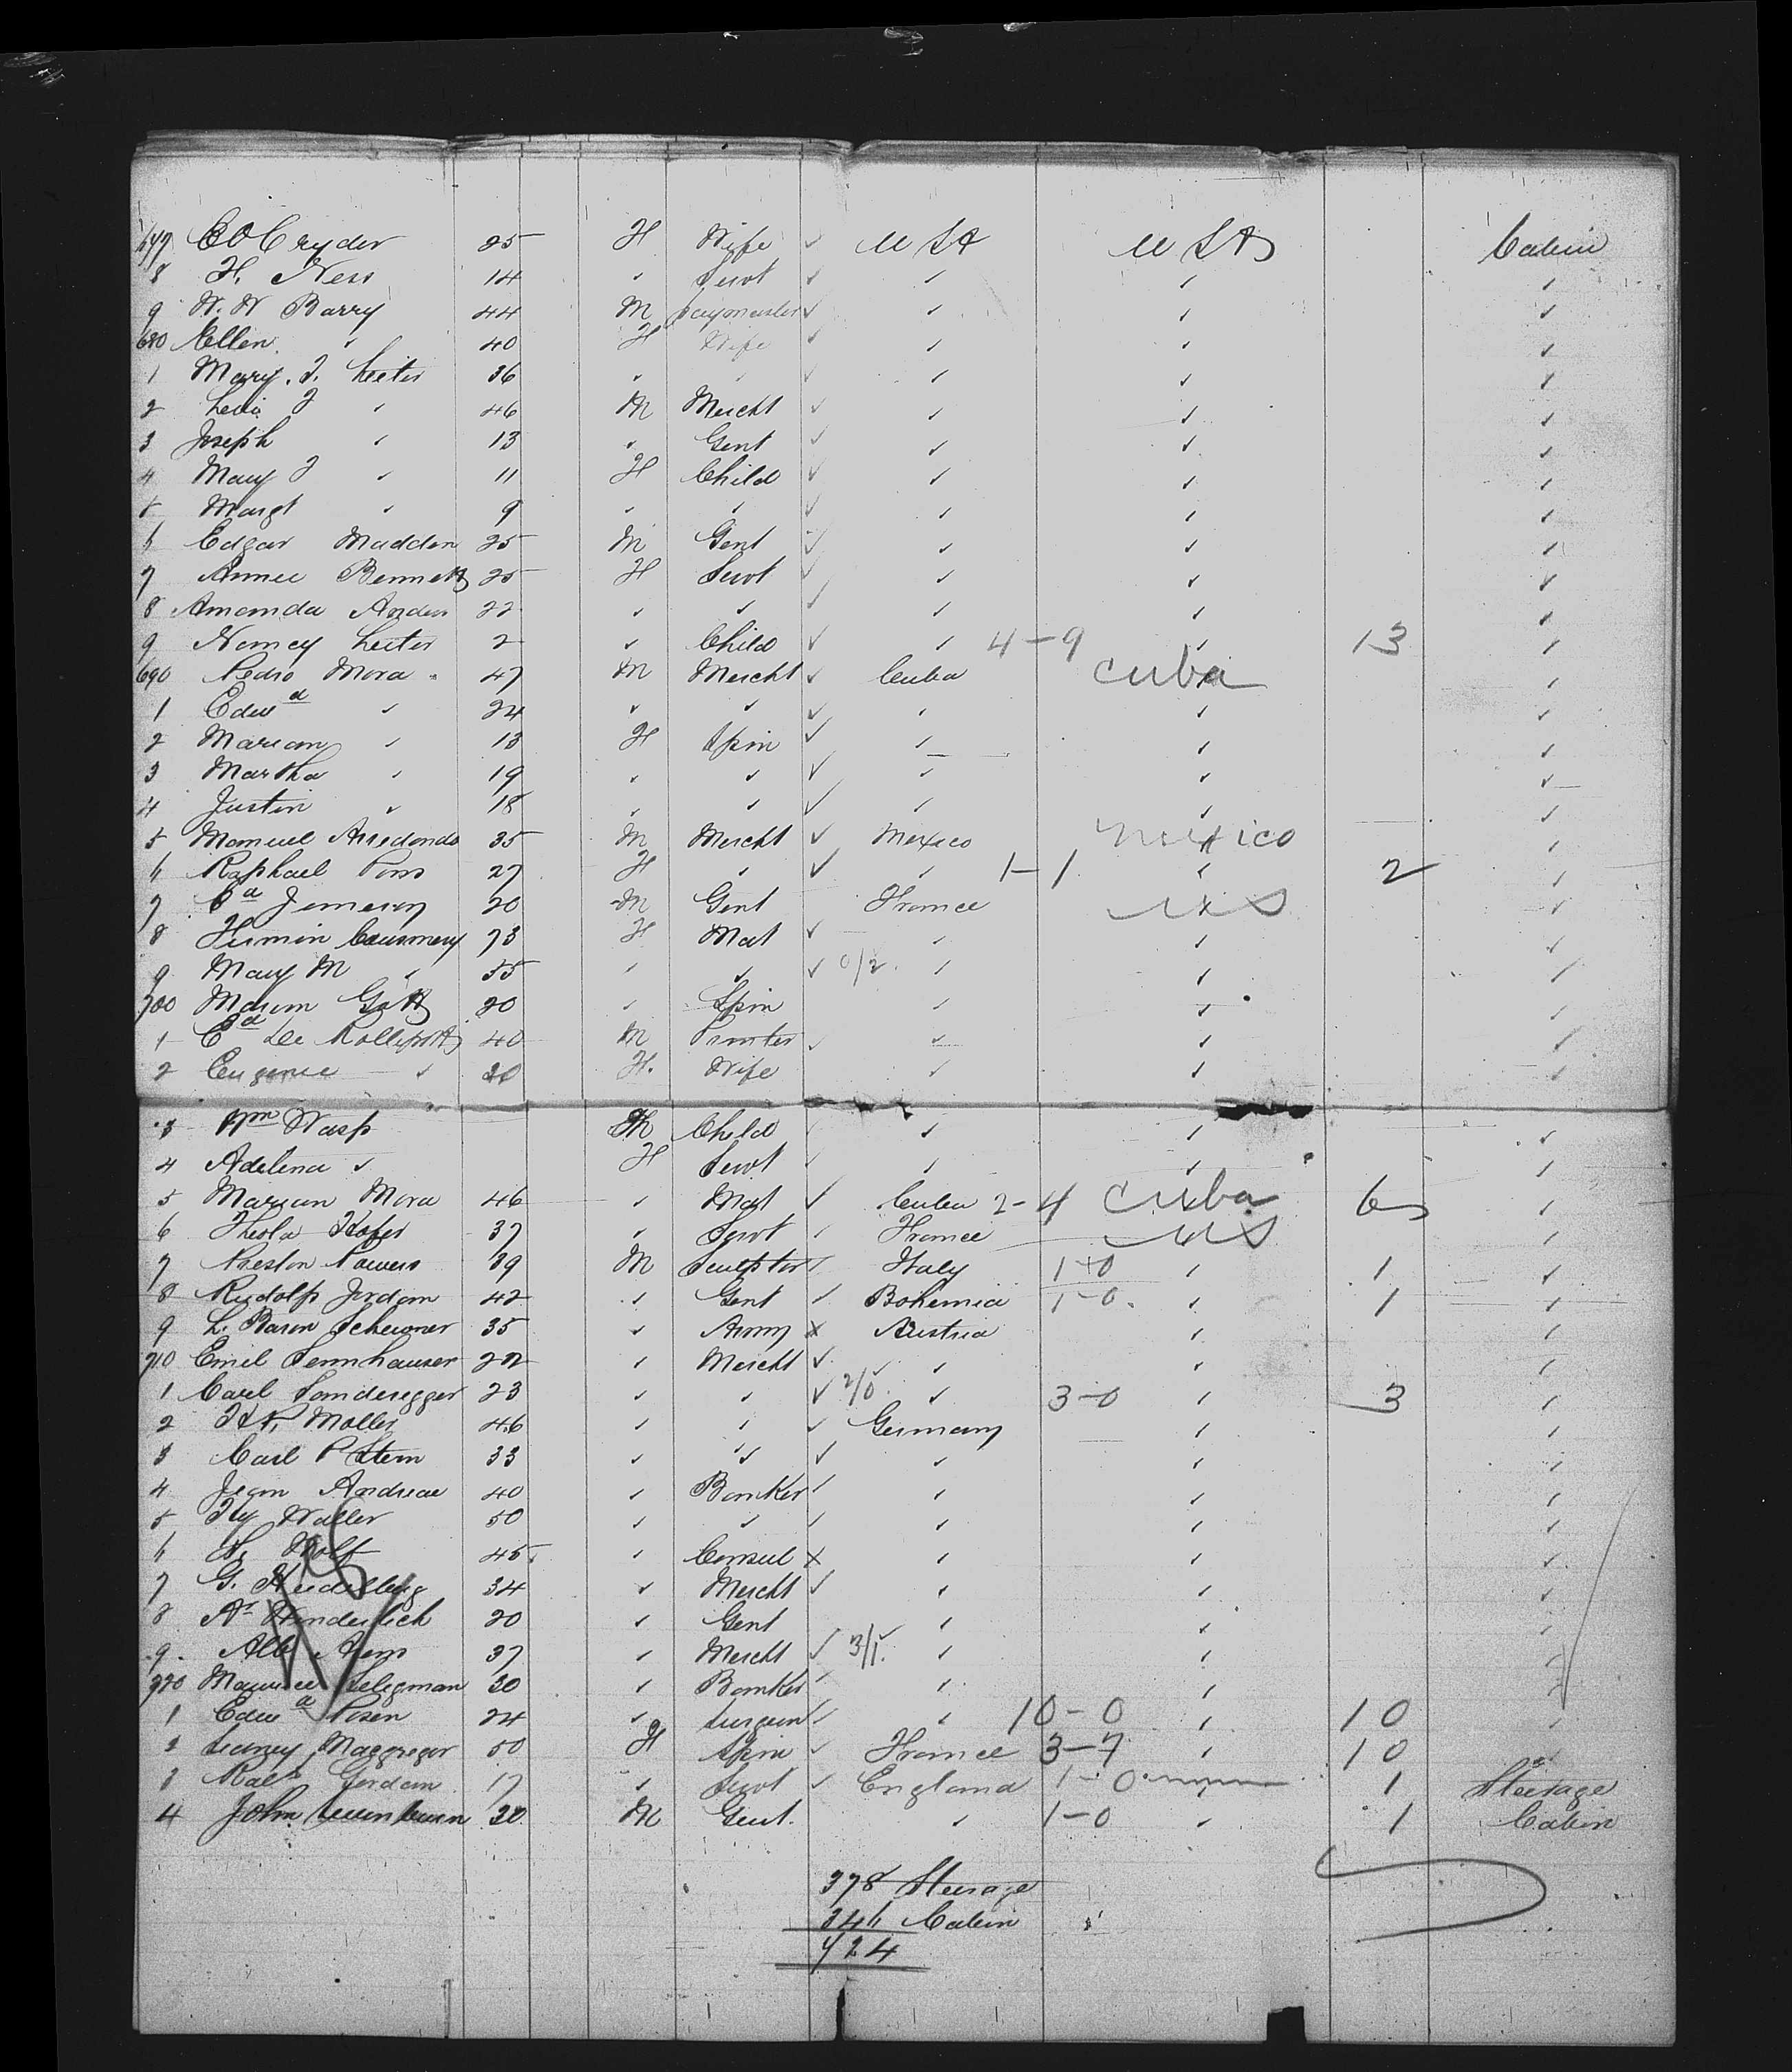 677 C O Cryder 25 F Wife ✓ U S A U S A Cabin
8 H. Ness 14 ✓ Servt ✓ ✓ ✓ ✓
9 W. W Barry 44 M Paymaster ✓ ✓ ✓ ✓
680 Ellen ✓ 40 F Wife ✓ ✓ ✓ ✓
1 Mary. T. Leiter 36 ✓ ✓ ✓ ✓ ✓
2 Levi Z ✓ 46 M Mercht ✓ ✓ ✓ ✓
3 Joseph ✓ 13 ✓ Gent ✓ ✓ ✓ ✓
4 Mary ✓ 11 F Child ✓ ✓ ✓ ✓
5 Margt ✓ 9 ✓ ✓ ✓ ✓ ✓ ✓
6 Edgar Madden 25 M Gent ✓ ✓ ✓ ✓
7 Annee Bennett 25 F Servt ✓ ✓ ✓ ✓
8 Amanda Anders 22 ✓ ✓ ✓ ✓ ✓ ✓
9 Nancy Leiter 2 ✓ Child ✓ ✓ 4-9 ✓ 13 ✓
690 Pedro Mora 47 M Mercht ✓ Cuba Cuba ✓
1 Edwd ✓ 24 ✓ ✓ ✓ ✓ ✓ ✓
2 Marian ✓ 13 F Spin ✓ ✓ ✓ ✓
3 Martha ✓ 19 ✓ ✓ ✓ ✓ ✓ ✓
4 Justin ✓ 18 ✓ ✓ ✓ ✓ ✓ ✓
5 Manuel Arredondo 35 M Mercht ✓ Mexico Mexico ✓
6 Raphael Pons 27 F ✓ ✓ ✓ 1-1 ✓ 2 ✓
7 Ed Jameson 20 M Gent France US ✓
8 Firmin 73 F Mat ✓ ✓ ✓ ✓
9 Mary M ✓ 55 ✓ ✓ ✓ 0/2. ✓ ✓ ✓
700 20 ✓ Spin ✓ ✓ ✓
1 Ed De 40 M Printer ✓ ✓ ✓ ✓
2 Eugenie ✓ 30 F. Wife ✓ ✓ ✓
3 Wm Wasp M Child ✓ ✓ ✓ ✓
4 Adelina ✓ F Servt ✓ ✓ ✓ ✓
5 Marian Mora 46 ✓ Mat ✓ Cuba 2-4 Cuba 6 ✓
6 Theola Hofer 37 ✓ Servt ✓ France US ✓
7 Preston Powers 39 M Sculptor ✓ Italy 1-0 ✓ 1 ✓
8 Rudolf Jordan 42 ✓ Gent ✓ Bohemia 1-0. ✓ 1 ✓
9 L. Baron 35 ✓ Army x Austria ✓ ✓
710 Emil Sennhauser 22 ✓ Mercht ✓ ✓ ✓ ✓
1 Carl Sonderegger 23 ✓ ✓ ✓ 2/0. ✓ 3-0 ✓ 3 ✓
2 Moller 46 ✓ ✓ ✓ Germany ✓ ✓
3 Carl P Stern 33 ✓ ✓ ✓ ✓ ✓ ✓
4 Jean Andreae 40 ✓ Banker ✓ ✓ ✓ ✓
5 Hy Waller 50 ✓ ✓ ✓ ✓ ✓ ✓
6 Wolf 45 ✓ Consul x ✓ ✓ ✓
7 G. Heidelberg 34 ✓ Mercht ✓ ✓ ✓ ✓
8 Ar Wunderlich 20 ✓ Gent ✓ ✓ ✓
9 Alb 37 ✓ Mercht ✓ 3/1. ✓ ✓ ✓
720 Maurice Seligman 30 ✓ Banker ✓ ✓ ✓ ✓
1 Edwd Posen 24 ✓ Surgeon ✓ ✓ 10-0 ✓ 10 ✓
2 Macgregor 50 F Spin ✓ France 3-7 ✓ 10 ✓
3 Ralp Gordon 17 ✓ Servt ✓ England 1-0 ✓ 1 Steerage
4 John 30 M Gent. ✓ 1-0 ✓ 1 Cabin
US
378 Steerage
346 Cabin
724